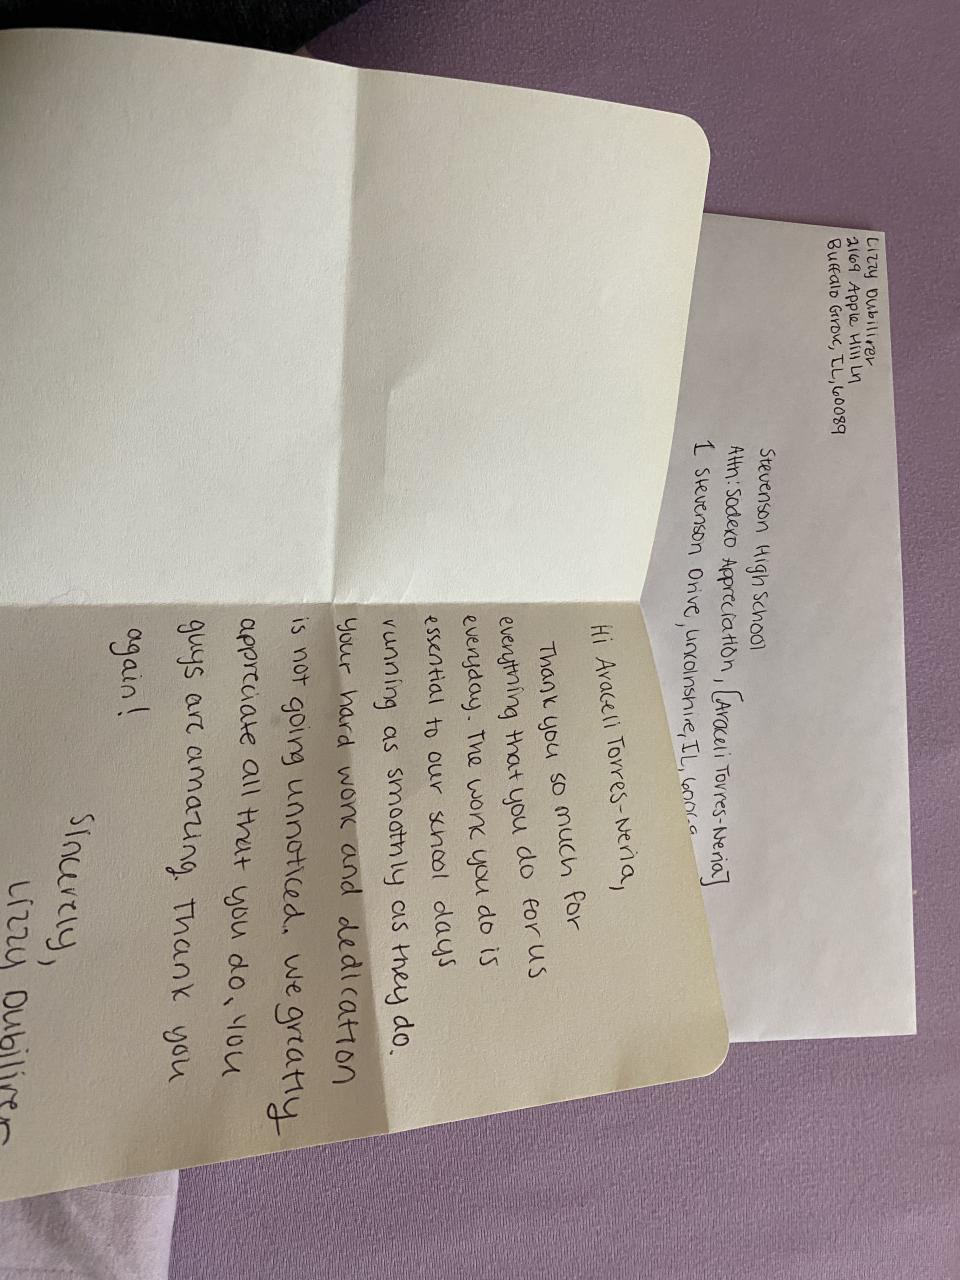 Lizzy Dubilirer
2169 Apple Hill Ln
Buffalo Grove, IL, 60089
Stevenson High School
Attn: Sodexo Appreciation, [Araceli Torres-Neria]
1 Stevenson Drive, Lincolnshire, IL,
Hi Araceli Torres-Neria,
Thank you so much for
everything that you do for us
everyday. The work you do is
essential to our school days
running as smoothly as they do.
your hard work and dedication
is not going unnoticed. we greatly
appreciate all that you do. You
guys are amazing. Thank you
again!
Sincerely,
Lizzy Dubilirer